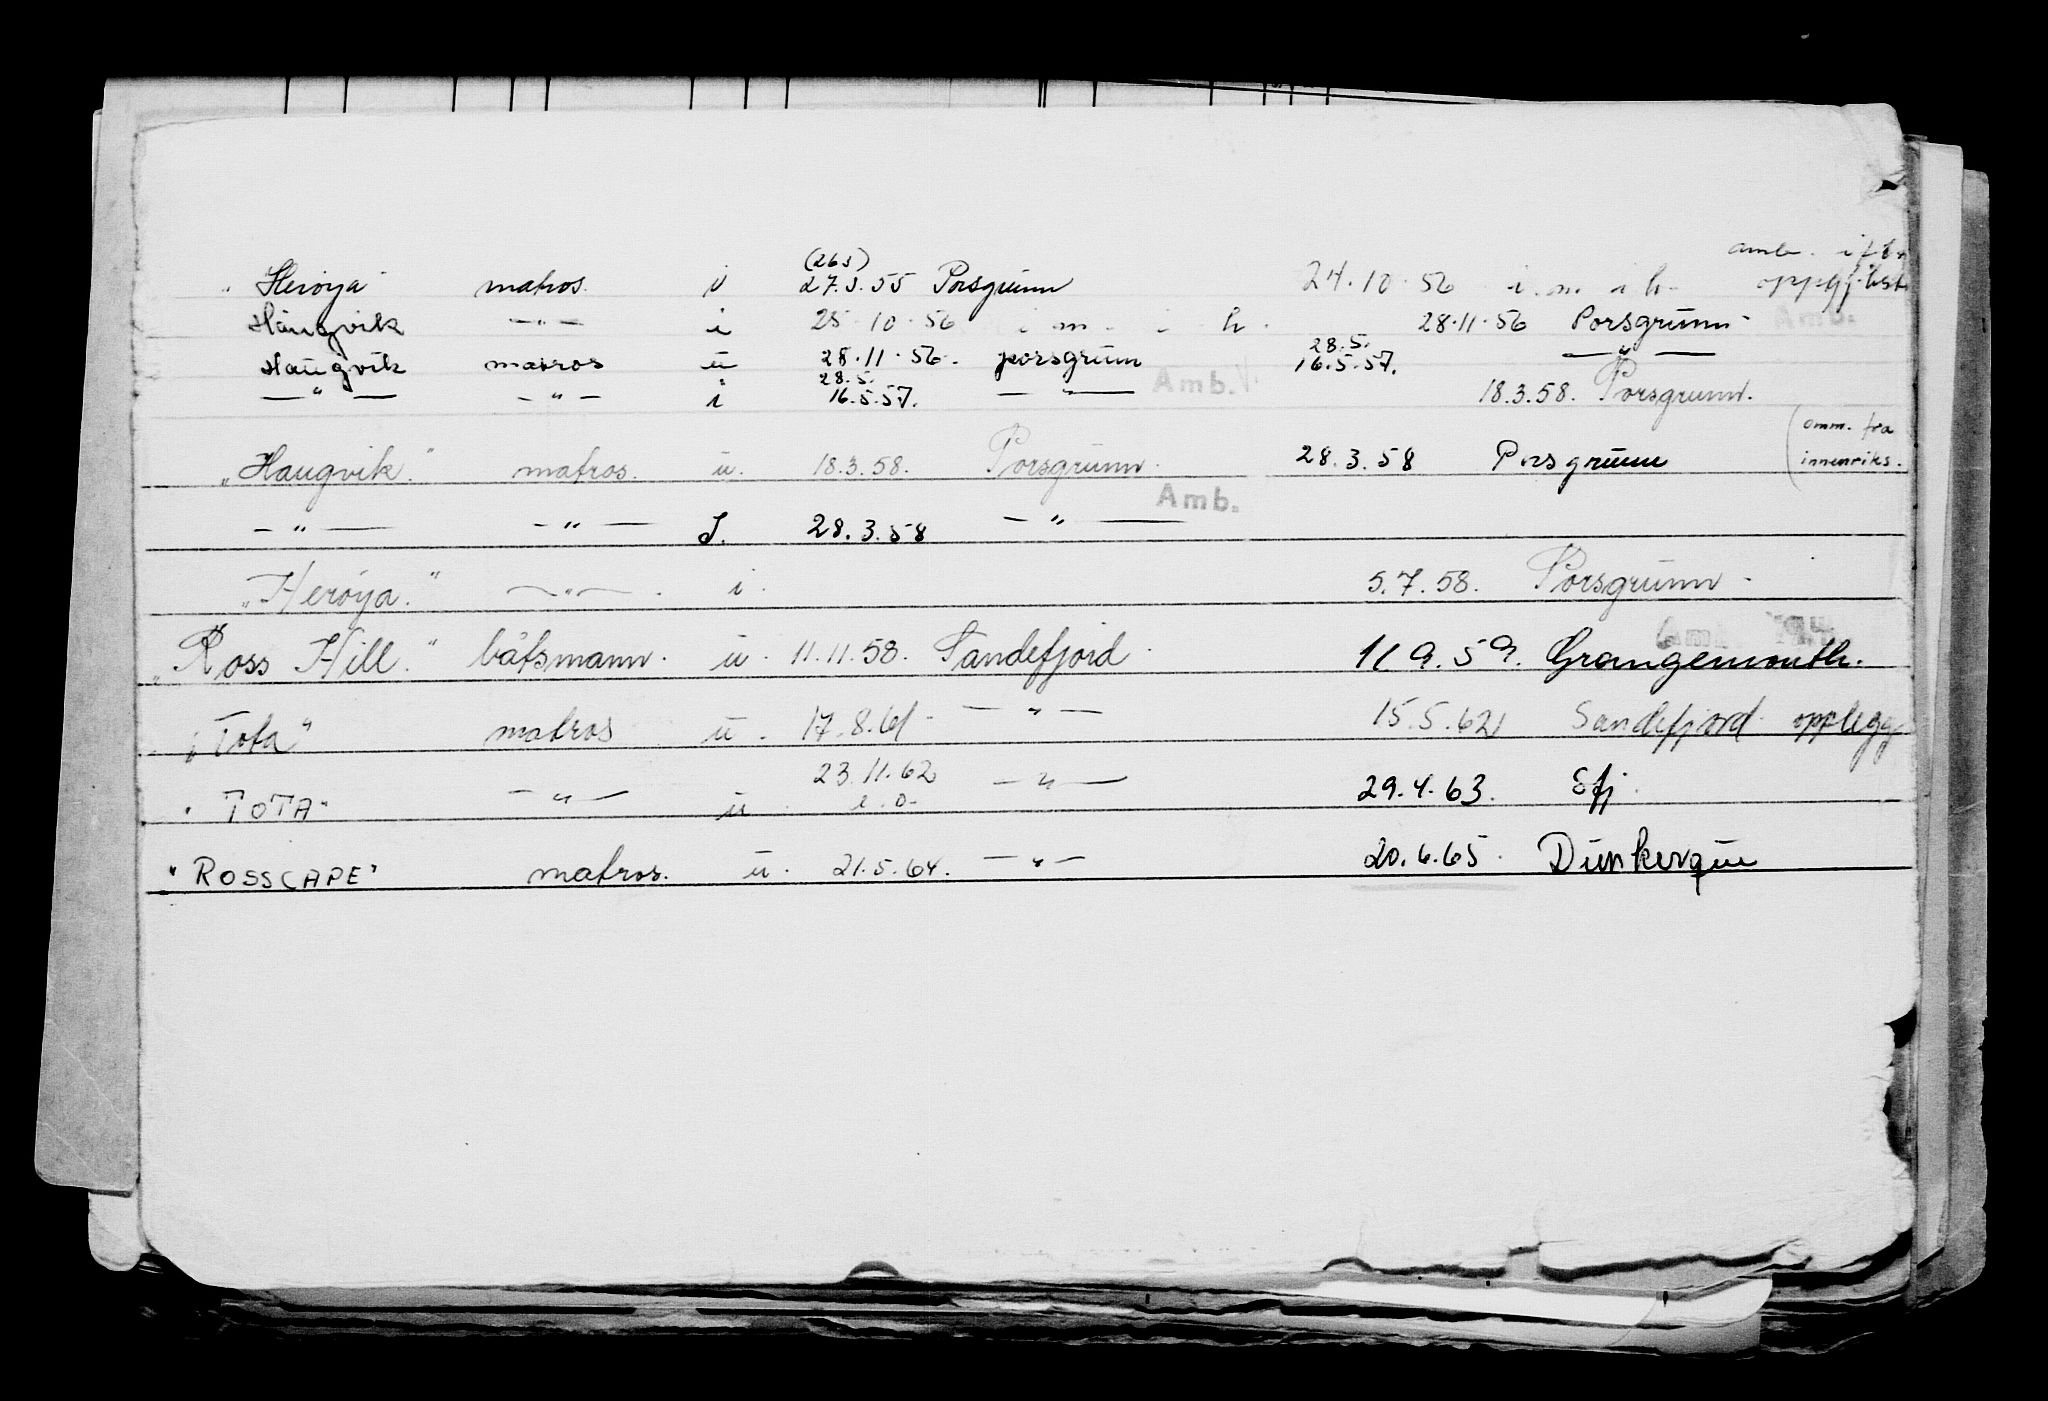 (26s) amb.
"Herøya" matros. i 27.3.55 Porsgrunn 24.10.56 i.m. i h.
Haugvik —"— i 25.10.56 i.m. i h. 28.11.56 Porsgrunn. Amb.
28.5.
Haugvik matros u 28.11.56. porsgrunn Amb. 16.5.57. —"—
28.5.
—"— —"— i 16.5.57. —"— 18.3.58. Porsgrunn.
(omm. fra
"Haugvik." matros. u. 18.3.58. Porsgrunn. 28.3.58 Porsgrunn innenriks.
Amb.
—"— —"— I. 28.3.58 —"—
"Herøya." —"—. i. 5.7.58. Porsgrunn.
"Ross Hill." båtsmann. u. 11.11.58. Sandefjord. 11 9.59. Grangemouth.
"Tota" matros u. 17.8.61. —"— 15.5.62 Sandefjord opplegg
23.11.62
"TOTA" —"— u. e.o. —"— 29.4.63. Sfj.
"ROSSCAPE" matros. u. 21.5.64. —"— 20.6.65. Dunkerque